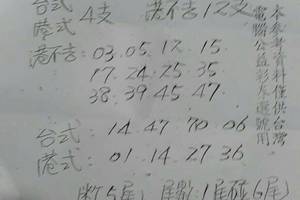 台式
港式 4支 港不告12支
港不告: 03. 05. 12. 15.
17. 24. 25. 35
38. 39. 45. 47.
台式: 14. 47. 70. 06
港式: 01. 14. 27. 36
断5尾, 尾數: 1尾碰6尾
本參考資料僅供台灣
電腦公益彩券選號用